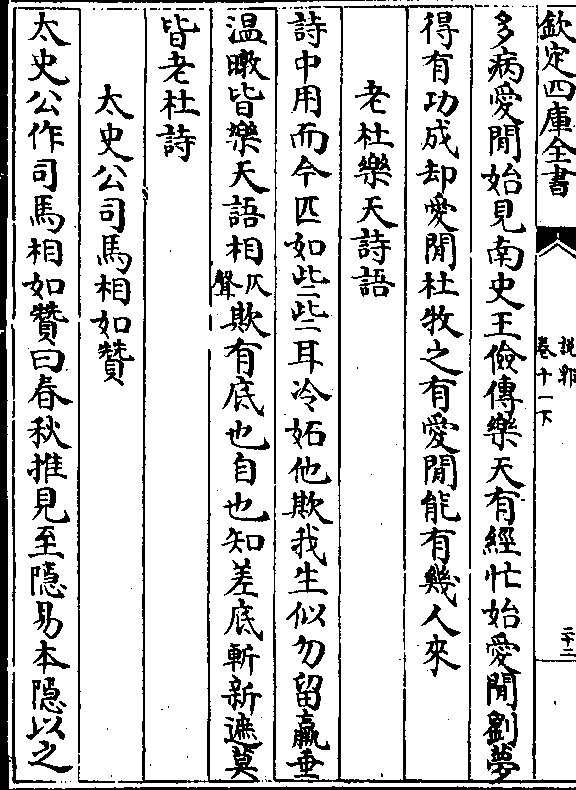 欽定四庫全書
說郛
卷十一下
二十二
多病愛閒始見南史王儉傳樂天有經忙始愛閒劉夢
得有功成却愛閒杜牧之有愛閒能有幾人來
老杜樂天詩語
詩中用而今匹如些二些二耳冷妬他欺我生似勿留贏垂
溫暾皆樂天語相仄聲欺有底也自也知差底斬新遮莫
皆老杜詩
太史公司馬相如贊
太史公作司馬相如贊曰春秋推見至隱易本隱以之